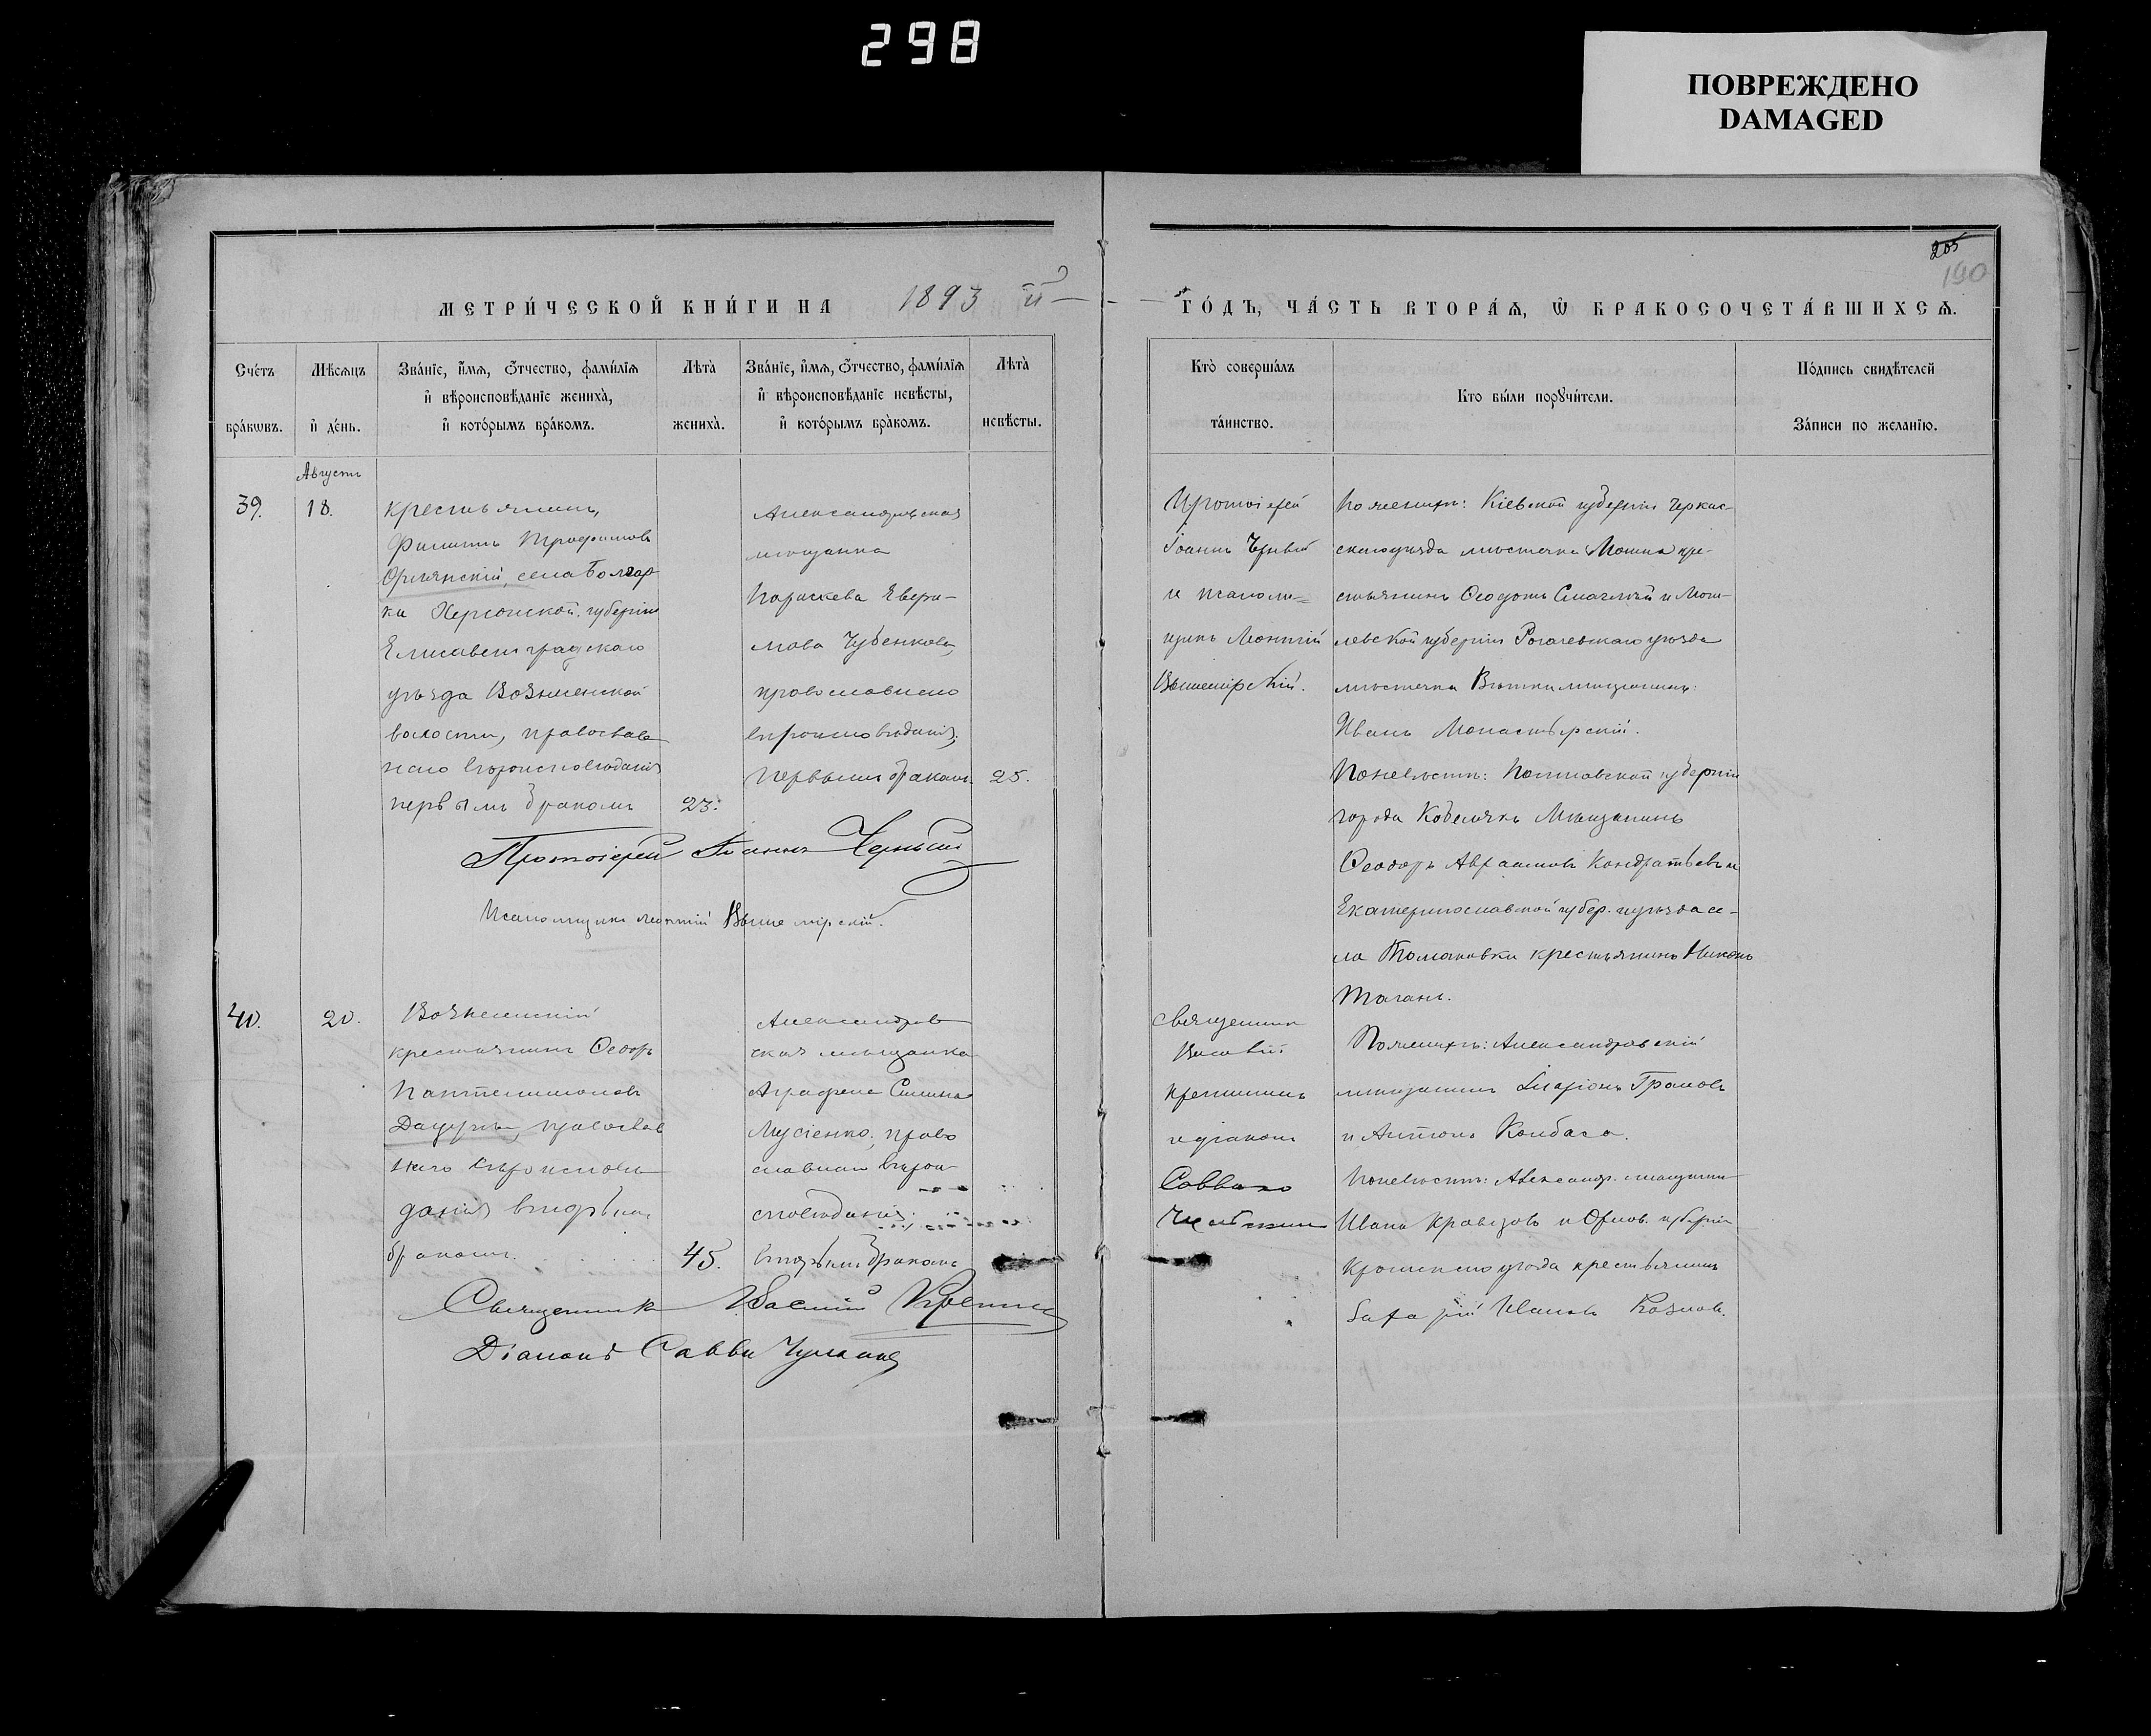 298
ПОВРЕЖДЕНО
DAMAGED
205
190
МЕТРИ́ЧЕСКОЙ КНИ́ГИ НА 1893 й
ГО́ДЪ, ЧА́СТЬ ВТОРА́Ѧ, Ѡ҆ БРАКОСОЧЕТА́ВШИХСѦ.
Сче́тъ бра́кѡвъ.
Мѣ́сѧцъ и҆ де́нь.
Зва́нїе, и҆́мѧ, ѻ҆́тчество, фамѝлїѧ
и҆ вѣроисповѣ́данїе жениха̀,
и҆ кото́рымъ бра́комъ.
Лѣ́та̀ жениха̀.
Зва́нїе, и҆́мѧ, ѻ҆́тчество, фамѝлїѧ
и҆ вѣроисповѣ́данїе невѣ́сты,
и҆ кото́рымъ бра́комъ.
Лѣ́та̀ невѣ́сты.
Кто̀ соверша́лъ
та́инство.
Кто бы́ли порꙋчи́тели.
По́дпись свидѣ́телей
За́писи по жела́нїю.
Августъ
39.
18.
крестьянинъ,
Филиппъ Трофимовъ
Орлянскій, села Болгар
ки Херсонской губерніи
Елисаветградскаго
уѣзда Вознесенской
волости, православ
наго вѣроисповѣданія
первымъ бракомъ
23.
Александровская
мѣщанка
Параскева Евфи-
мова Чубенкова,
православнаго
вѣроисповѣданія,
первымъ бракомъ.
25.
Протоіерей
Іоаннъ Черный
и псалом=
щикъ Леонтій
Вышемірскій.
По женихѣ: Кіевской губерніи Черкас-
скаго уѣзда мѣстечка Мошна кре-
стьянинъ Ѳеодотъ и Моги-
левской губерніи Рогачевскаго уѣзда
мѣстечка Вѣтки мѣщанинъ:
Иванъ Монастырскій.
По невѣстѣ: Полтавской губерніи
города Кобелякъ Мѣщанинъ
Ѳеодоръ Авраамовъ Кондратьевъ и
Екатеринославской губер. и уѣзда се-
ла Томаковки крестьянинъ Никонъ
Таганъ.
Протоіерей Іоаннъ Черный
Псаломщикъ Леонтій Вышемірскій.
40.
20.
Вознесенскій
крестьянинъ Ѳеодоръ
Пантелимоновъ
православ
наго вѣроисповѣ
данія вторымъ
бракомъ.
45.
Александров
ская мѣщанка
Аграфена Симина
Мусіенко, право
славнаго вѣрои
сповѣданія.
вторымъ бракомъ
Священникъ
Василій
Крепининъ
и діаконъ
Савва
По женихѣ: Александровскій
мѣщанинъ Иларіонъ Громовъ
и Антонъ Колбаса.
По невѣстѣ: Александр. мѣщанинъ
Иванъ Кравцовъ и Орлов. губерніи
уѣзда крестьянинъ
Захарій Ивановъ Козловъ.
Священникъ Василій
Діаконъ Савва